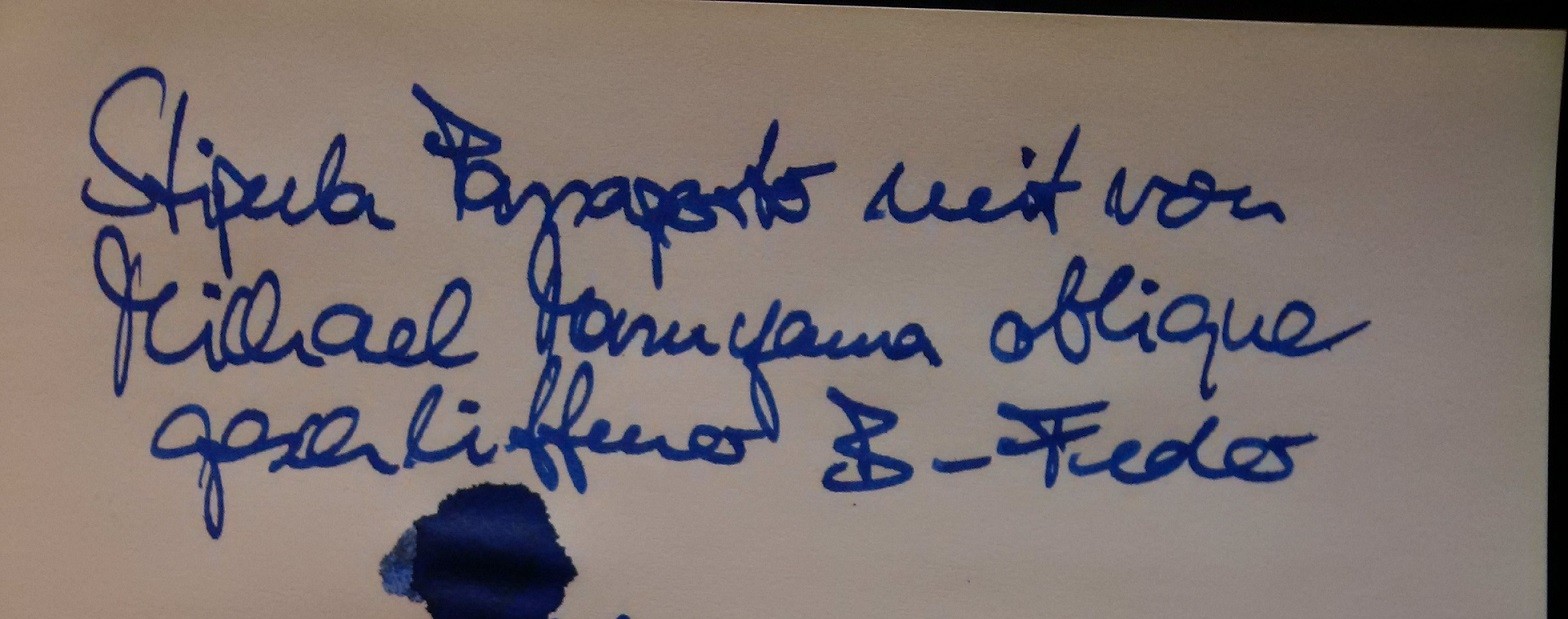 Stipula Passaporto mit von
Michael Masuyama oblique
geschliffener B-Feder